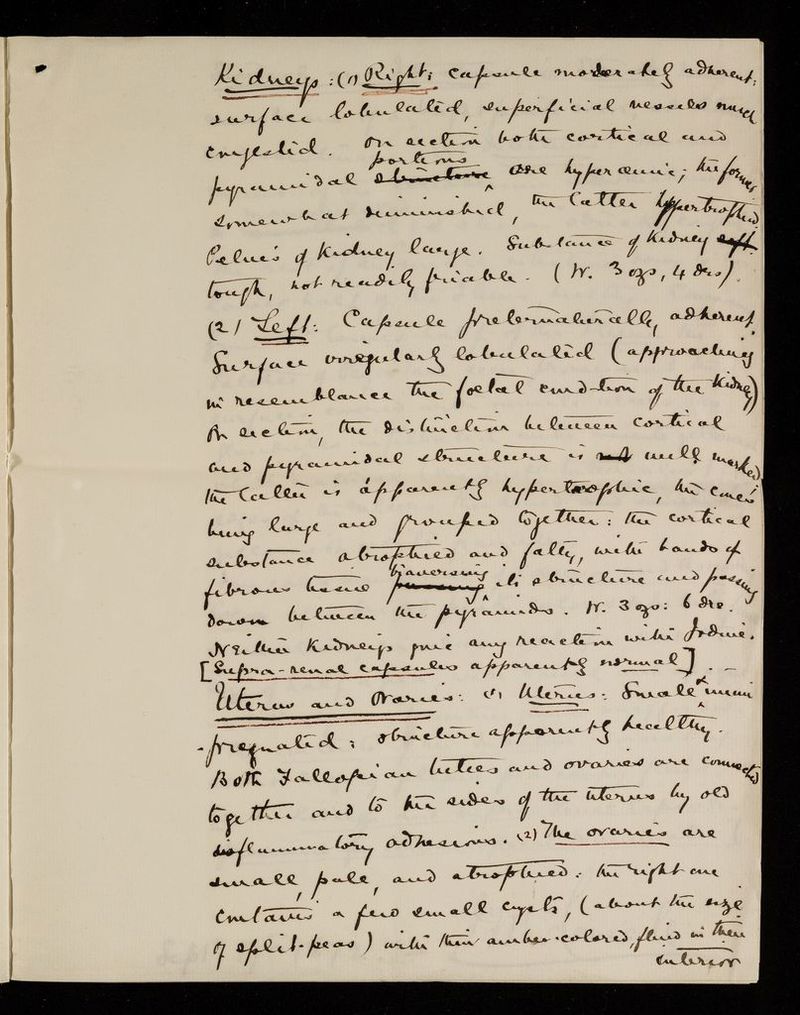 Kidneys: (1) Right: capsule moderately adherent:
surface lobulated, superficial vessels much
congested. On section both cortical and
pyramidal structure portions are hyperæmic; the former
somewhat diminished, the latter hypertrophied
Pelvis of Kidney large. Substance of Kidney soft
tough, not readily friable. (W. 3 ozs, 4 drs).
(2) Left: Capsule preternaturally adherent.
Surface irregularly lobulated (approaching
in resemblance the foetal condition of the Kidney)
On section, the distinction between cortical
and pyramidal structure is not well marked,
the latter is apparently hypertrophic, the cones
being large and grouped together: the cortical
substance atrophied and fatty, with bands of
fibrous tissue passing traversing its structure and passing
down between the pyramids. W. 3 ozs: 6 drs.
Neither Kidneys give any reaction with Iodine.
[Supra-renal capsules apparently normal]. –
Uterus and Ovaries: (1) Uterus: Small &
-pregnated; structure apparently healthy.
Both Fallopian tubes and ovaries are connected
together and to the sides of the uterus by old
inflammatory adhesions. (2) The ovaries are
small, pale, and atrophied: the right one
contains a few small cysts, (about the size
of split-peas) with thin amber-colored fluid in their
interior